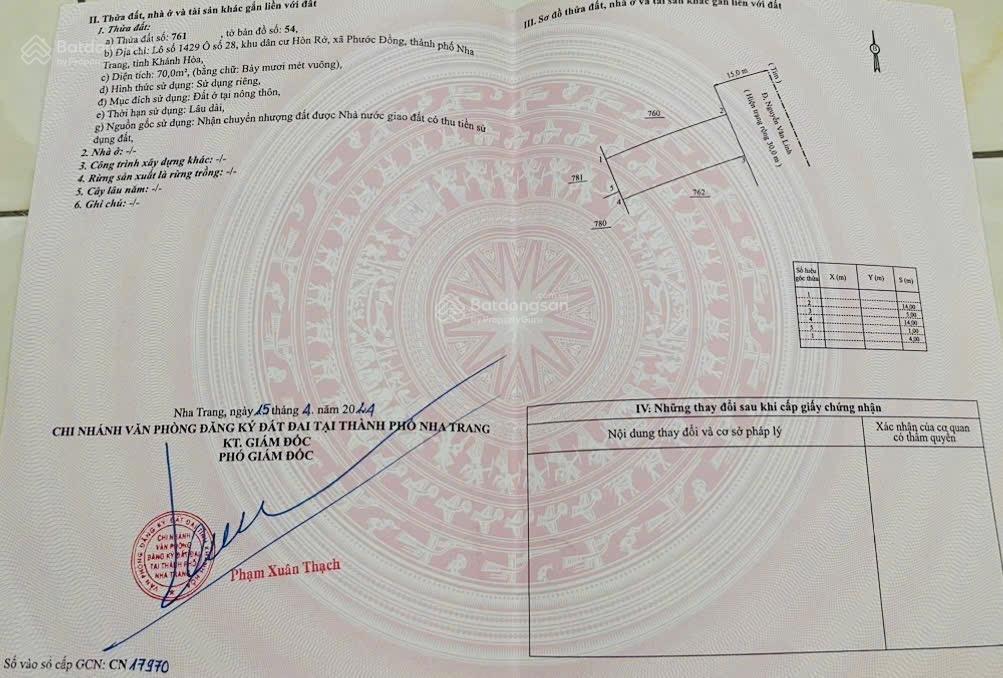 II. Thửa đất, nhà ở và tài sản khác gắn liền với đất
1. Thửa đất:
a) Thửa đất số: 761 , tờ bản đồ số: 54,
b) Địa chỉ: Lô số 1429 Ô số 28, khu dân cư Hòn Rớ, xã Phước Đồng, thành phố Nha
Trang, tỉnh Khánh Hòa,
c) Diện tích: 70,0m², (bằng chữ: Bảy mươi mét vuông),
d) Hình thức sử dụng: Sử dụng riêng,
đ) Mục đích sử dụng: Đất ở tại nông thôn,
e) Thời hạn sử dụng: Lâu dài,
g) Nguồn gốc sử dụng: Nhận chuyển nhượng đất được Nhà nước giao đất có thu tiền sử
dụng đất,
2. Nhà ở: -/-
3. Công trình xây dựng khác: -/-
4. Rừng sản xuất là rừng trồng: -/-
5. Cây lâu năm: -/-
6. Ghi chú: -/-
Nha Trang, ngày 15 tháng 4. năm 2024
CHI NHÁNH VĂN PHÒNG ĐĂNG KÝ ĐẤT ĐAI TẠI THÀNH PHỐ NHA TRANG
KT. GIÁM ĐỐC
PHÓ GIÁM ĐỐC
CHI NHÁNH
VĂN PHÒNG
ĐĂNG KÝ ĐẤT ĐAI
TẠI THÀNH PHỐ
NHA TRANG
Phạm Xuân Thạch
Số vào sổ cấp GCN: CN 17970
III. Sơ đồ thửa đất, nhà ở và tài sản khác gắn liền với đất
15,0 m
( Tim )
Đ. Nguyễn Văn Linh
( Hiện trạng rộng 30,0 m )
760
2
1
3
781
5
4
762
780
Số hiệu góc thửa X (m) Y (m) S (m)
1
2 14,00
3 5,00
4 14,00
5 1,00
1 4,00
IV. Những thay đổi sau khi cấp giấy chứng nhận
Nội dung thay đổi và cơ sở pháp lý
Xác nhận của cơ quan
có thẩm quyền
Batdongsan
by PropertyGuru